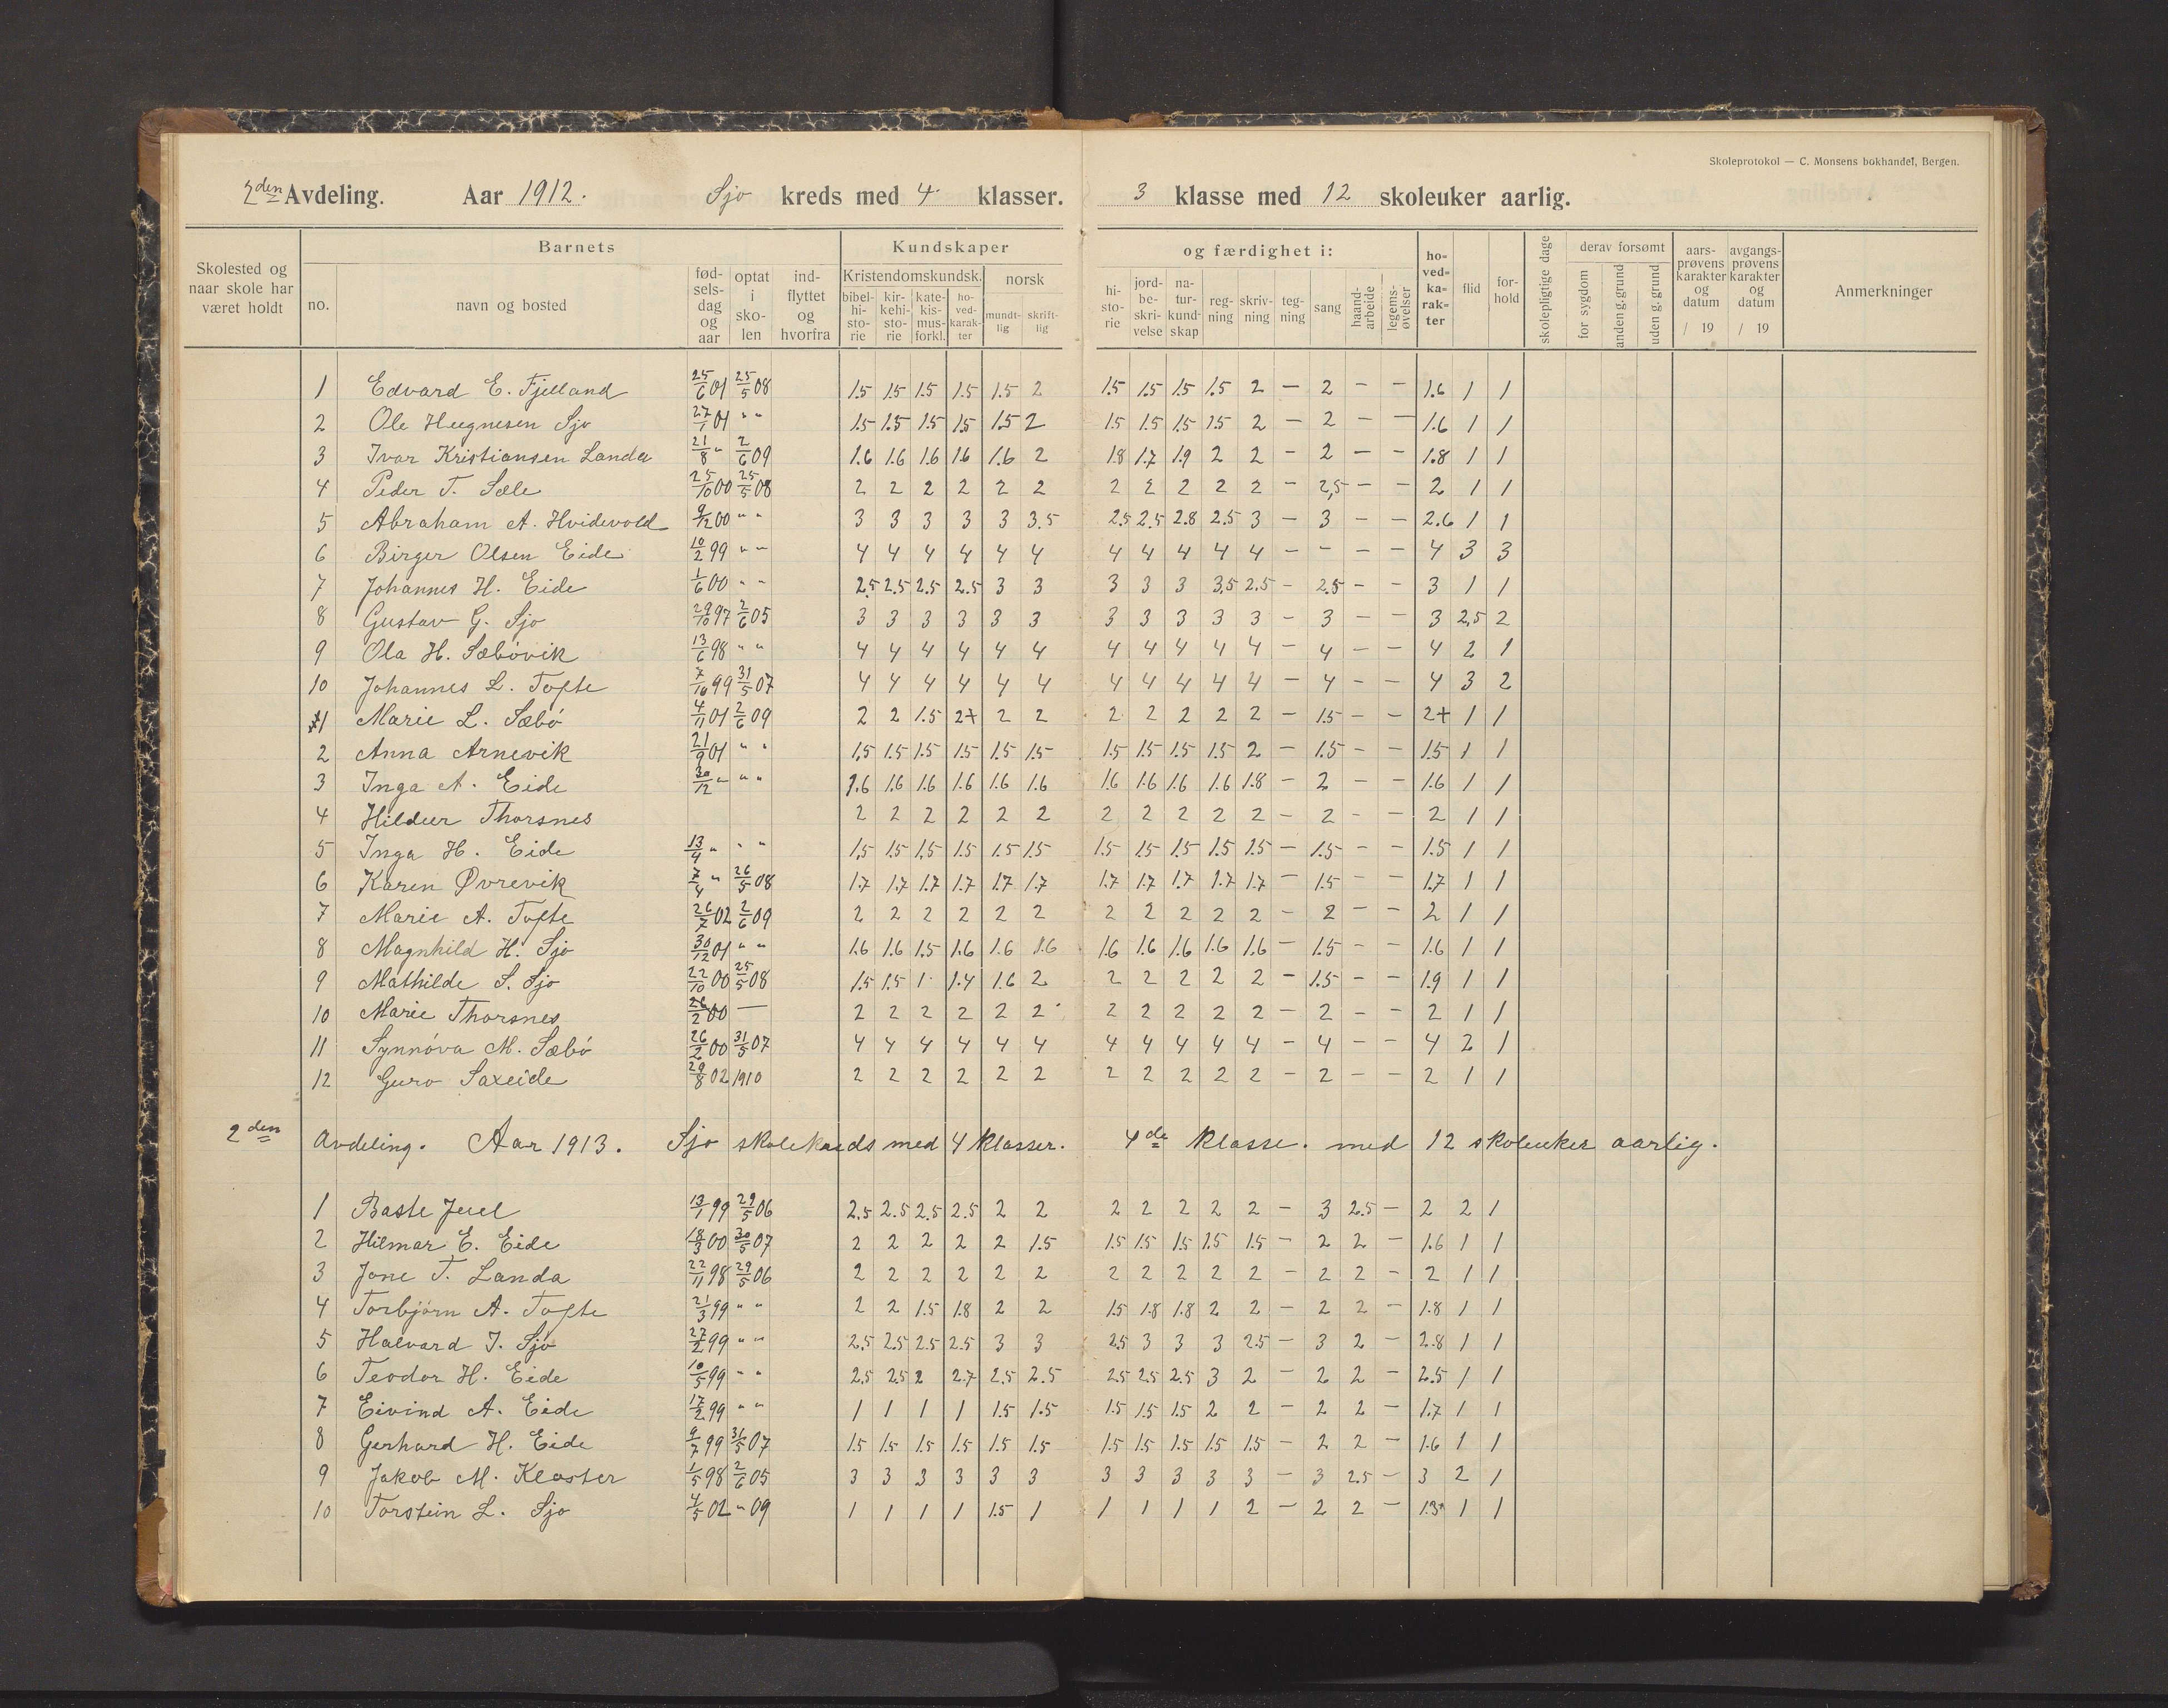 Skoleprotokol — C. Monsens bokhandel, Bergen.
2den Avdeling. Aar 1912. Sjo kreds med 4 klasser. 3 klasse med 12 skoleuker aarlig.
Skolested og naar skole har været holdt
Barnets
no. navn og bosted fødselsdag og aar optat i skolen indflyttet og hvorfra
Kundskaper og færdighet i:
Kristendomskundsk. norsk
bibelhistorie kirkehistorie katekismusforkl. hovedkarakter mundtlig skriftlig
historie jordbeskrivelse naturkundskap regning skrivning tegning sang haandarbeide legemsøvelser
hovedkarakter flid forhold skolepligtige dage
derav forsømt for sygdom anden g. grund uden g. grund
aarsprøvens karakter og datum / 19 avgangsprøvens karakter og datum / 19 Anmerkninger
1 Edvard E. Fjelland 25/6 01 25/5 08 1.5 1.5 1.5 1.5 1.5 2 1.5 1.5 1.5 1.5 2 — 2 — — 1.6 1 1
2 Ole Hugnesen Sjo 27/1 01 " " 1.5 1.5 1.5 1.5 1.5 2 1.5 1.5 1.5 1.5 2 — 2 — — 1.6 1 1
3 Ivar Kristiansen Landa 21/8 " 2/6 09 1.6 1.6 1.6 1.6 1.6 2 1.8 1.7 1.9 2 2 — 2 — — 1.8 1 1
4 Peder T. Sæle 25/10 00 25/5 08 2 2 2 2 2 2 2 2 2 2 2 — 2,5 — — 2 1 1
5 Abraham A. Hvidevold 9/12 00 " " 3 3 3 3 3 3.5 2.5 2.5 2.8 2.5 3 — 3 — — 2.6 1 1
6 Birger Olsen Eide 10/2 99 " " 4 4 4 4 4 4 4 4 4 4 4 — — — — 4 3 3
7 Johannes H. Eide 1/6 00 " " 2.5 2.5 2.5 2.5 3 3 3 3 3 3,5 2.5 — 2.5 — — 3 1 1
8 Gustav G. Sjo 29/10 97 2/6 05 3 3 3 3 3 3 3 3 3 3 3 — 3 — — 3 2,5 2
9 Ola H. Sæbövik 13/6 98 " " 4 4 4 4 4 4 4 4 4 4 4 — 4 — — 4 2 1
10 Johannes L. Tofte 7/10 99 31/5 07 4 4 4 4 4 4 4 4 4 4 4 — 4 — — 4 3 2
1 Marie L. Sæbö 4/11 01 2/6 09 2 2 1.5 2+ 2 2 2 2 2 2 2 — 1.5 — — 2+ 1 1
2 Anna Arnevik 21/9 01 " " 1,5 1.5 1.5 1.5 1.5 1.5 1.5 1.5 1.5 1.5 2 — 1.5 — — 1.5 1 1
3 Inga A. Eide 30/12 " " " 1.6 1.6 1.6 1.6 1.6 1.6 1.6 1.6 1.6 1.6 1.8 — 2 — — 1.6 1 1
4 Hildur Thorsnes 2 2 2 2 2 2 2 2 2 2 2 — 2 — — 2 1 1
5 Inga H. Eide 13/4 " " " 1,5 1.5 1,5 1.5 1.5 1.5 1.5 1.5 1.5 1.5 1.5 — 1.5 — — 1.5 1 1
6 Karen Øvrevik 7/4 " 26/5 08 1.7 1.7 1.7 1.7 1.7 1.7 1.7 1.7 1.7 1.7 1.7 — 1.5 — — 1.7 1 1
7 Marie A. Tofte 26/7 02 2/6 09 2 2 2 2 2 2 2 2 2 2 2 — 2 — — 2 1 1
8 Magnhild H. Sjo 30/12 01 " " 1.6 1.6 1.5 1.6 1.6 1.6 1.6 1.6 1.6 1.6 1.6 — 1.5 — — 1.6 1 1
9 Mathilde S. Sjo 22/10 00 25/5 08 1.5 1.5 1 1.4 1.6 2 2 2 2 2 2 — 1.5 — — 1.9 1 1
10 Marie Thorsnes 26/2 00 — 2 2 2 2 2 2 2 2 2 2 2 — 2 — — 2 1 1
11 Synnöva M. Sæbö 26/2 00 31/5 07 4 4 4 4 4 4 4 4 4 4 4 — 4 — — 4 2 1
12 Guro Saxeide 29/8 02 1910 2 2 2 2 2 2 2 2 2 2 2 — 2 — — 2 1 1
2den Avdeling. Aar 1913. Sjo skolekreds med 4 klasser. 4de klasse. med 12 skoleuker aarlig.
1 Baste Juel 13/1 99 29/5 06 2.5 2.5 2.5 2.5 2 2 2 2 2 2 2 — 3 2.5 — 2 2 1
2 Hilmar E. Eide 18/3 00 30/5 07 2 2 2 2 2 1.5 1.5 1.5 1.5 1.5 1.5 — 2 2 — 1.6 1 1
3 Jone T. Landa 22/11 98 29/5 06 2 2 2 2 2 2 2 2 2 2 2 — 2 2 — 2 1 1
4 Torbjörn A. Tofte 21/3 99 " " 2 2 1.5 1.8 2 2 1.5 1.8 1.8 2 2 — 2 2 — 1.8 1 1
5 Halvard J. Sjo 27/2 99 " " 2,5 2.5 2.5 2.5 3 3 2.5 3 3 3 2.5 — 3 2 — 2.8 1 1
6 Teodor H. Eide 10/5 99 " " 2.5 2.5 2 2.7 2.5 2.5 2.5 2.5 2.5 3 2 — 2 2 — 2.5 1 1
7 Eivind A. Eide 17/2 99 " " 1 1 1 1 1.5 1.5 1.5 1.5 1.5 2 2 — 2 2 — 1.7 1 1
8 Gerhard H. Eide 9/7 99 31/5 07 1.5 1.5 1.5 1.5 1.5 1.5 1.5 1.5 1.5 1.5 1.5 — 2 2 — 1.6 1 1
9 Jakob M. Kloster 1/5 98 2/6 05 3 3 3 3 3 3 3 3 3 3 3 — 3 2.5 — 3 2 1
10 Torstein L. Sjo 4/5 02 " 09 1 1 1 1 1.5 1 1 1 1 1 2 — 2 2 — 1.3+ 1 1